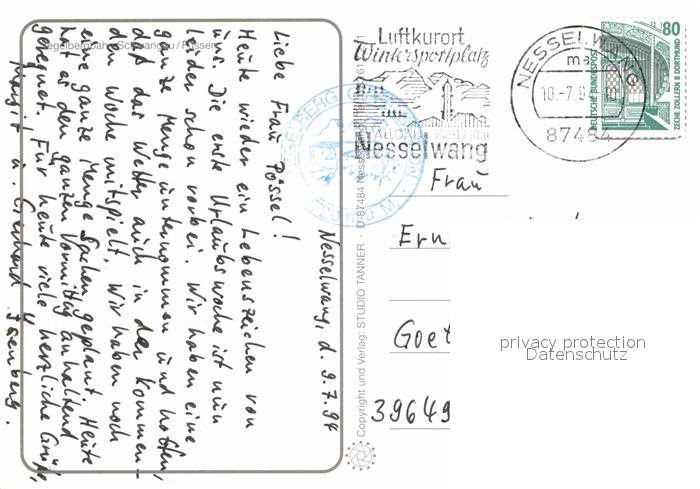 Tegelbergbahn, Schwangau / Füssen
Nesselwang, d. 9.7.94
Liebe Frau Pössel!
Heute wieder ein Lebenszeichen von
uns. Die erste Urlaubswoche ist nun
leider schon vorbei. Wir haben eine
ganze Menge unternommen und hoffen,
daß das Wetter auch in der kommen-
den Woche mitspielt. Wir haben noch
eine ganze Menge Sachen geplant. Heute
hat es den ganzen Vormittag anhaltend
geregnet. Für heute viele herzliche Grüße
Margit u. Gerhard
Copyright und Verlag: STUDIO TANNER · D-87484 Nesselwang
Luftkurort
Wintersportplatz
ALLGÄU
Nesselwang
NESSELWANG
ma
10.-7.9
87484
80
DEUTSCHE BUNDESPOST
ZECHE ZOLLERN II DORTMUND
TEGELBERG
1720 m ü. M.
Frau
Ern
Goet
39649
privacy protection
Datenschutz